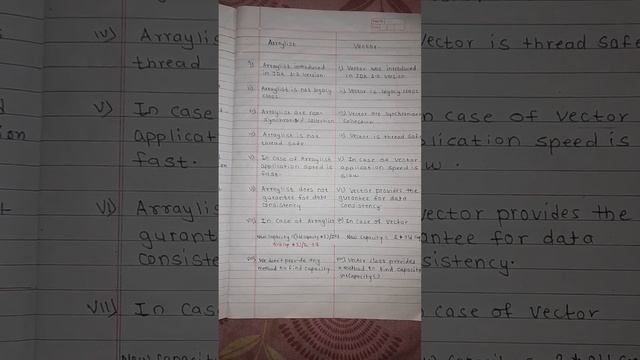 Arraylist
Vector
i) Arraylist introduced
in JDK 1.2 version.
i) Vector was introduced
in JDK 1.0 version.
ii) Arraylist is not legacy
class.
ii) Vector is legacy class.
iii) Arraylist are non-
synchronized collection.
iii) Vector are synchronized
collection
iv) Arraylist is not
thread safe.
iv) Vector is thread safe
v) In case of Arraylist
application speed is
fast.
v) In case of Vector
application speed is
slow
vi) Arraylist does not
gurantee for data
consistency
vi) Vector provides the
gurantee for data
consistency.
vii) In case of Arraylist
New capacity =
vii) In case of Vector
New capacity = 2 * old cap
viii) We don't provide any
method to find capacity.
viii) Vector class provides
method to find capacity
capacity()
iv) Arraylis
thread
v) In case
applicat
fast.
vi) Arraylis
gurant
consiste
vii) In Cas
New capacity
vector is thread safe
n case of vector
lication speed is
w.
vector provides the
antee for data
sistency.
case of vector